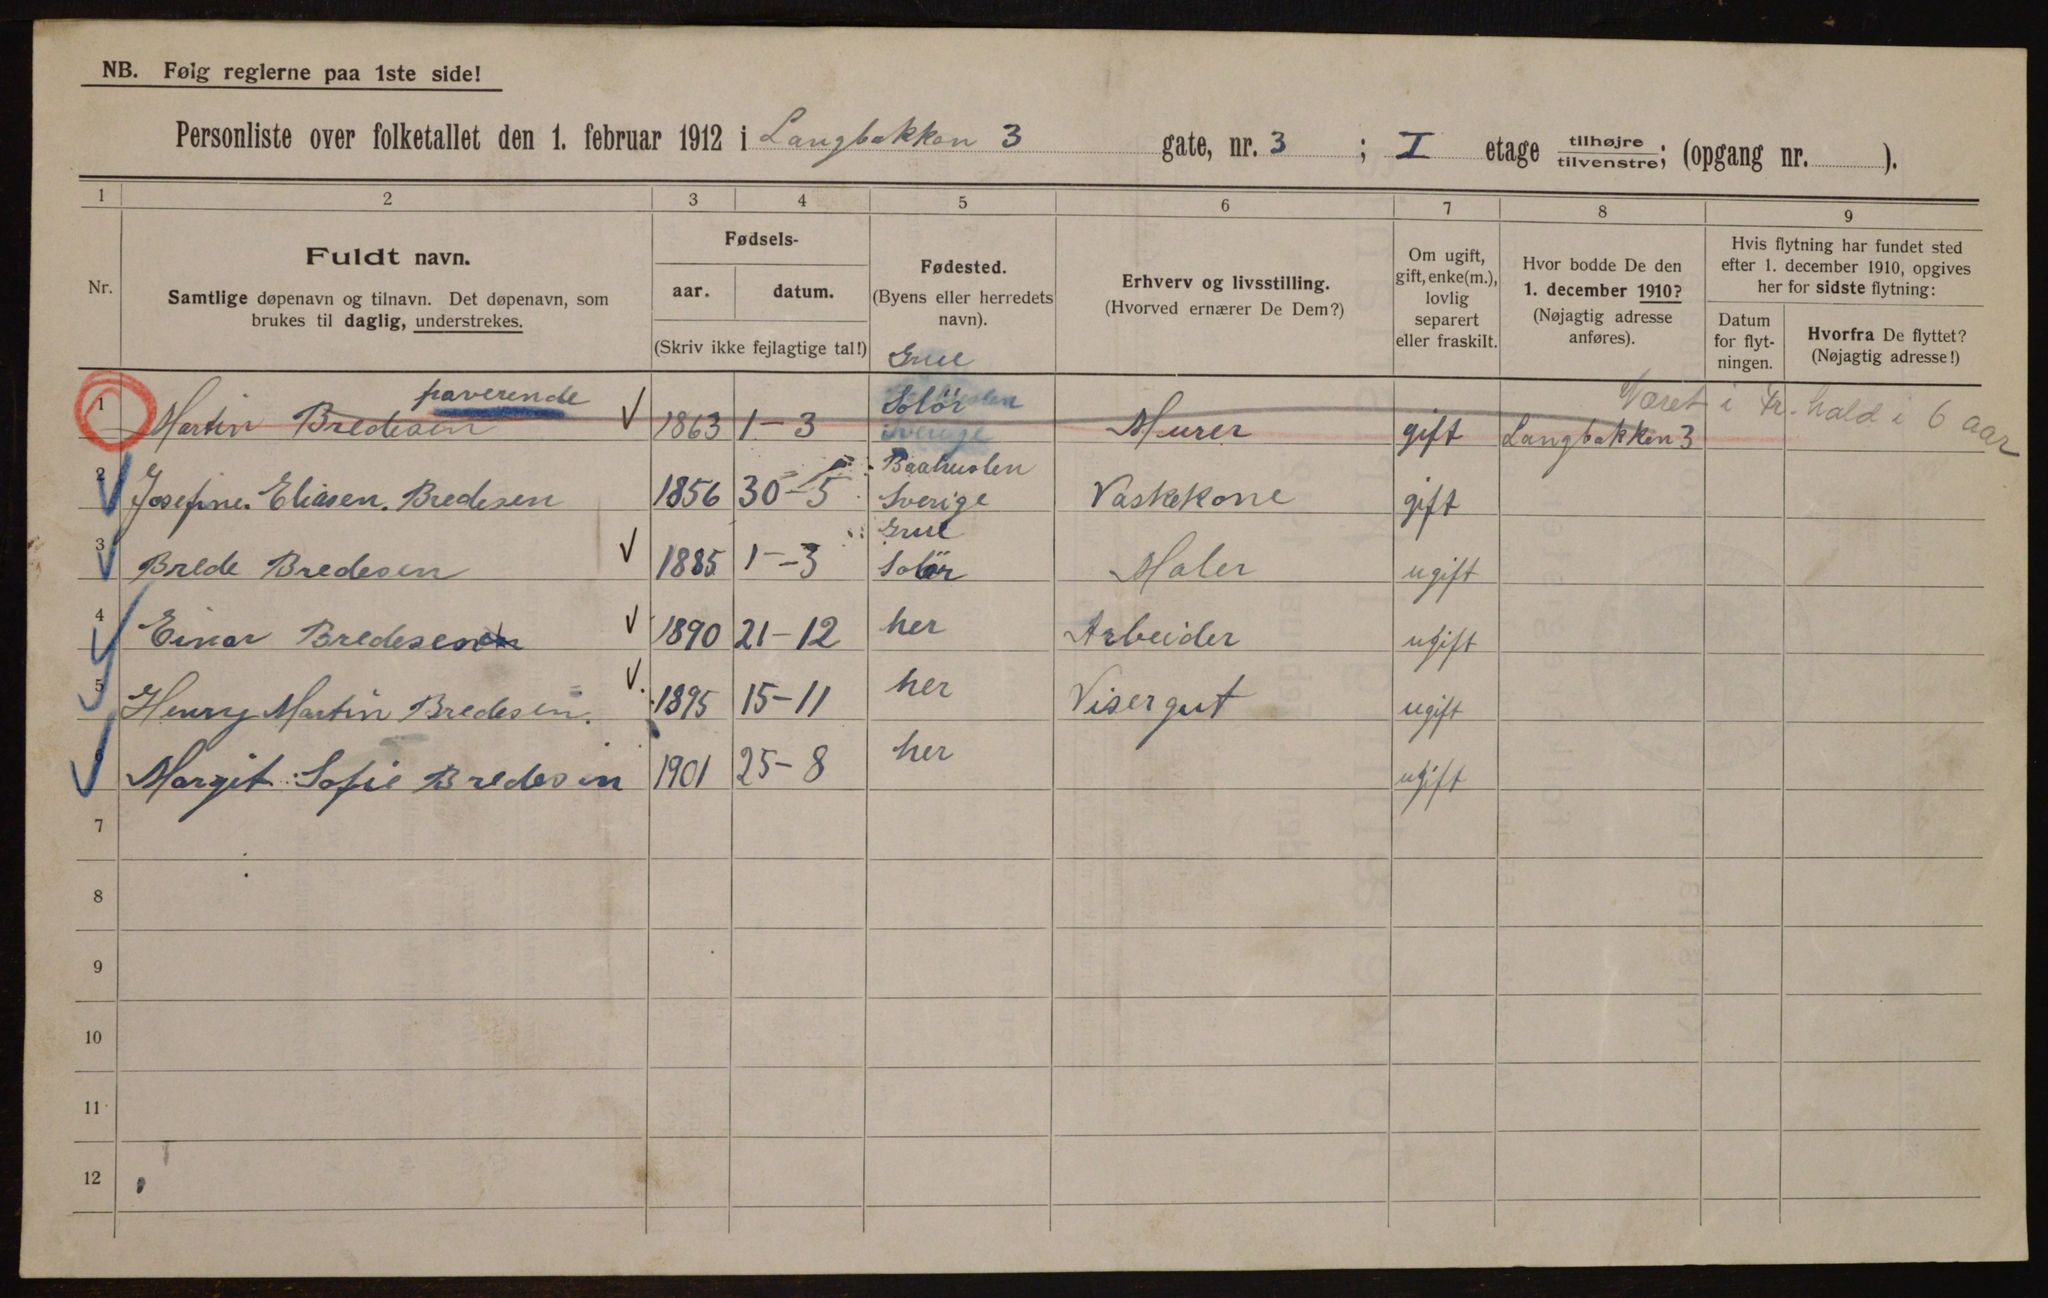 NB. Følg reglerne paa 1ste side!
Personliste over folketallet den 1. februar 1912 i Langbakken 3 gate, nr. 3 ; I etage tilhøjre tilvenstre; (opgang nr. ).
1 2 3 4 5 6 7 8 9
Nr.
Fuldt navn.
Samtlige døpenavn og tilnavn. Det døpenavn, som
brukes til daglig, understrekes.
Fødsels-
aar. datum.
(Skriv ikke fejlagtige tal!)
Fødested.
(Byens eller herredets
navn).
Erhverv og livsstilling.
(Hvorved ernærer De Dem?)
Om ugift,
gift, enke(m.),
lovlig
separert
eller fraskilt.
Hvor bodde De den
1. december 1910?
(Nøjagtig adresse
anføres).
Hvis flytning har fundet sted
efter 1. december 1910, opgives
her for sidste flytning:
Datum
for flyt-
ningen.
Hvorfra De flyttet?
(Nøjagtig adresse!)
Grue
fraverende Solør Været i Fr.hald i 6 aar
1 Martin Bredesen 1863 1-3 Sverige Murer gift Langbakken 3
Baahuslen
2 Josefine. Eliasen. Bredesen 1856 30-5 Sverige Vaskekone gift
Grue
3 Brede Bredesen 1885 1-3 Solør Maler ugift
4 Einar Bredesen 1890 21-12 her Arbeider ugift
5 Henry Martin Bredesen. 1895 15-11 her Visergut ugift
Margit Sofie Bredesen 1901 25-8 her ugift
7
8
9
10
11
12